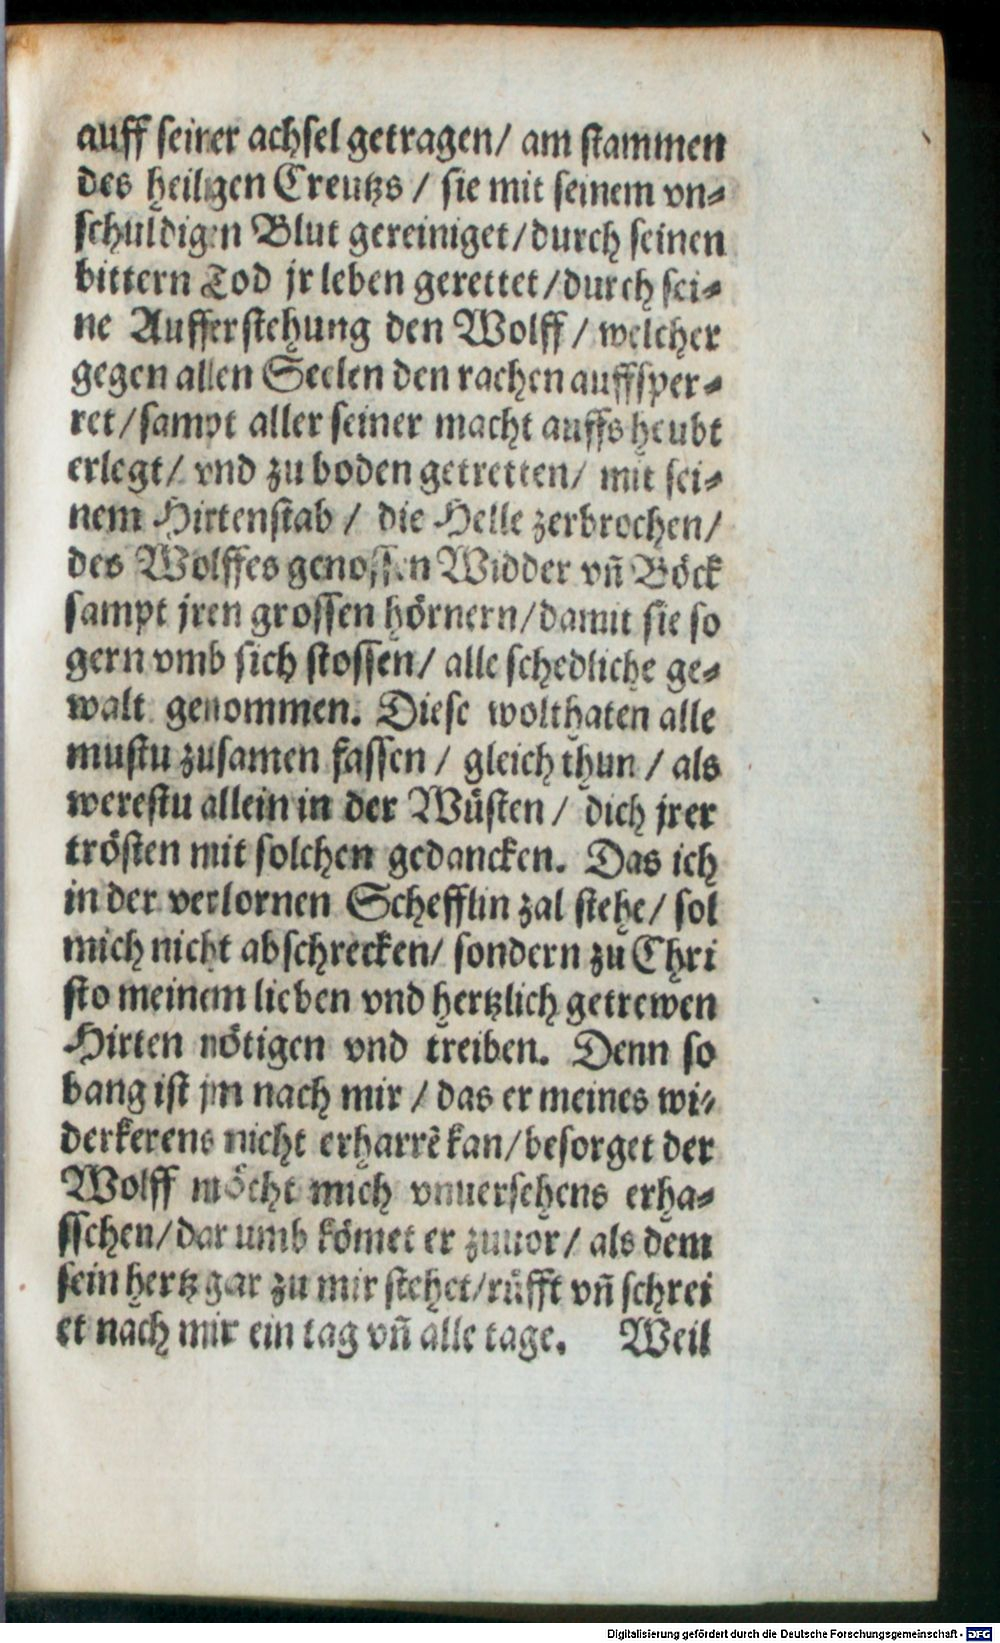 auff seiner achsel getragen/ am stammen
des heiligen Creutzs / sie mit seinem vn⸗
schuldigen Blut gereiniget/durch seinen
bittern Tod jr leben gerettet/durch sei⸗
ne Aufferstehung den Wolff / welcher
gegen allen Seelen den rachen auffsper⸗
ret/sampt aller seiner macht auffs heubt
erlegt/ vnd zu boden getretten/ mit sei⸗
nem Hirtenstab / die Helle zerbrochen/
des Wolffes genossen Widder vñ Böck
sampt jren grossen hörnern/damit sie so
gern vmb sich stossen/ alle schedliche ge⸗
walt genommen. Diese wolthaten alle
mustu zusamen fassen / gleich thun / als
werestu allein in der Wüsten / dich jrer
trösten mit solchen gedancken. Das ich
in der verlornen Schefflin zal stehe/ sol
mich nicht abschrecken/ sondern zu Chri
sto meinem lieben vnd hertzlich getrewen
Hirten nötigen vnd treiben. Denn so
bang ist jm nach mir / das er meines wi⸗
derkerens nicht erharrẽ kan/besorget der
Wolff möcht mich vnuersehens erha⸗
sschen/dar umb kömet er zuuor/ als dem
sein hertz gar zu mir stehet/rüfft vñ schrei
et nach mir ein tag vñ alle tage. Weil
Digitalisierung gefördert durch die Deutsche Forschungsgemeinschaft - DFG